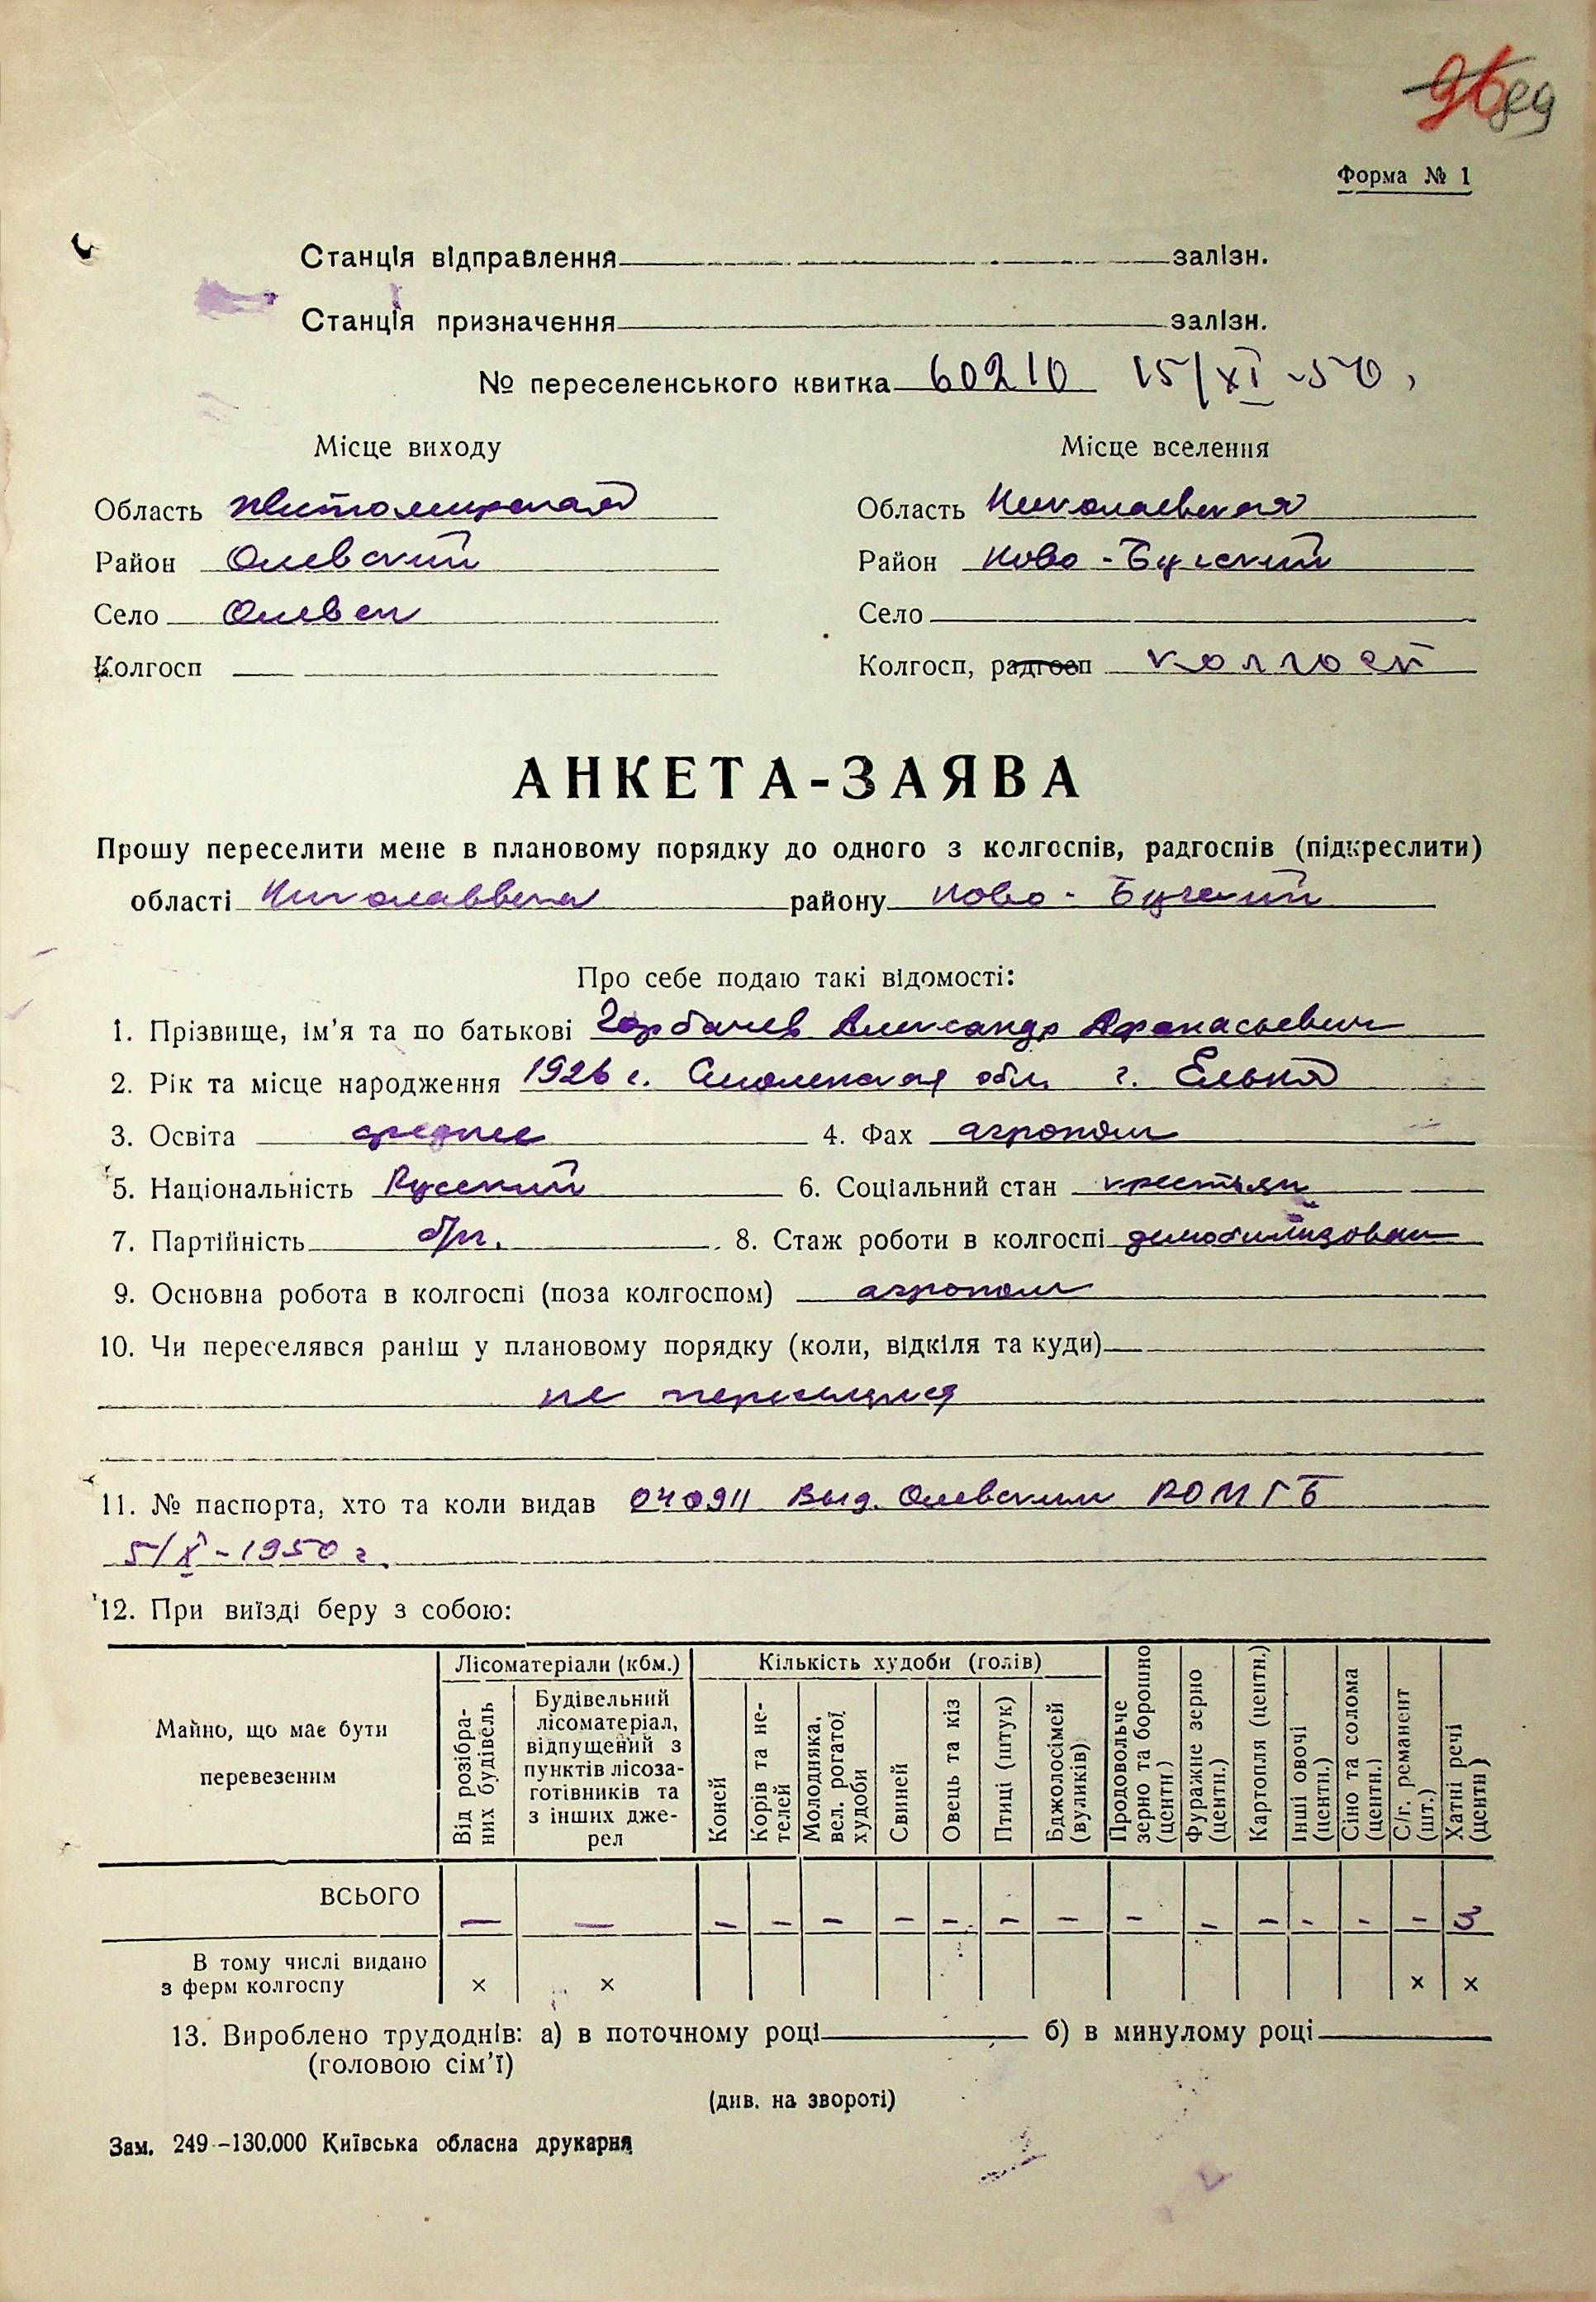 96 89
Форма № 1
Станція відправлення залізн.
Станція призначення залізн.
№ переселенського квитка 60210 15/XI-50,
Місце виходу Місце вселення
Область Житомирская Область Николаевская
Район Олевский Район Ново-Бугский
Село Олевск Село
Колгосп Колгосп, радгосп колгосп
АНКЕТА-ЗАЯВА
Прошу переселити мене в плановому порядку до одного з колгоспів, радгоспів (підкреслити)
області району Ново-Бугский
Про себе подаю такі відомості:
1. Прізвище, ім'я та по батькові Горбачев Александр Афанасьевич
2. Рік та місце народження 1926 г. Смоленская обл. г. Ельня
3. Освіта среднее 4. Фах агроном
5. Національність Русский 6. Соціальний стан крестьян
7. Партійність б/п. 8. Стаж роботи в колгоспі демобилизован
9. Основна робота в колгоспі (поза колгоспом) агроном
10. Чи переселявся раніш у плановому порядку (коли, відкіля та куди)
не переселялся
11. № паспорта, хто та коли видав 040911 Выд. Олевским РОМГБ
5/X-1950 г.
12. При виїзді беру з собою:
Майно, що має бути перевезеним
Лісоматеріали (кбм.)
Від розібраних будівель
Будівельний
лісоматеріал,
відпущений з
пунктів лісоза-
готівників та
з інших дже-
рел
Кількість худоби (голів)
Коней
Корів та не-
телей
Молодняка,
вел. рогатої
худоби
Свиней
Овець та кіз
Птиці (штук)
Бджолосімей
(вуликів)
Продовольче
зерно та борошно
(центн.)
Фуражне зерно
(центн.)
Картопля (центн.)
Інші овочі
(центн.)
Сіно та солома
(центн.)
С/г. реманент
(шт.)
Хатні речі
(центн)
ВСЬОГО — — - - - - - - - - - - - - - 3
В тому числі видано
з ферм колгоспу × × × ×
13. Вироблено трудоднів: а) в поточному році б) в минулому році
(головою сім'ї)
(див. на звороті)
Зам. 249-130.000 Київська обласна друкарня